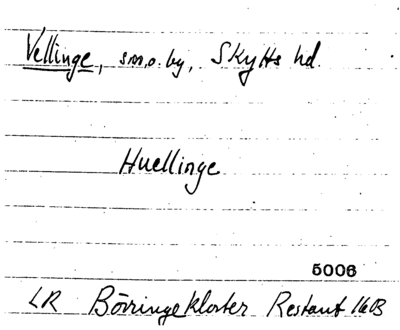 Vellinge, sn.o.by, Skytts hd.
Huellinge
5006
LR Börringekloster Restant 16B